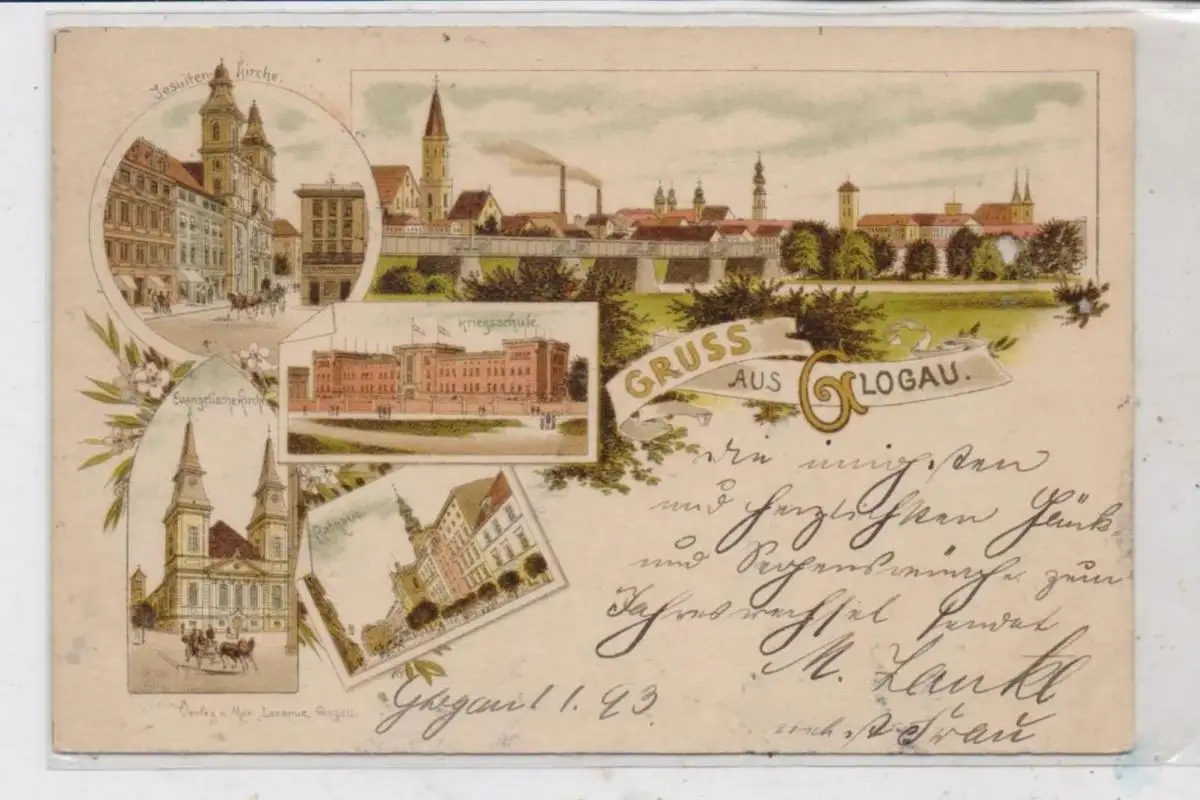 Jesuiten-Kirche.
Kriegsschule.
GRUSS AUS GLOGAU.
Evangelische Kirche
Rathaus
die innigsten
und herzlichsten Glück
und Segenswünsche zum
Jahreswechsel sendet
M.
nebst Frau
Glogau 1. 1. 93
Verlag v. Max Lazarus, Glogau.